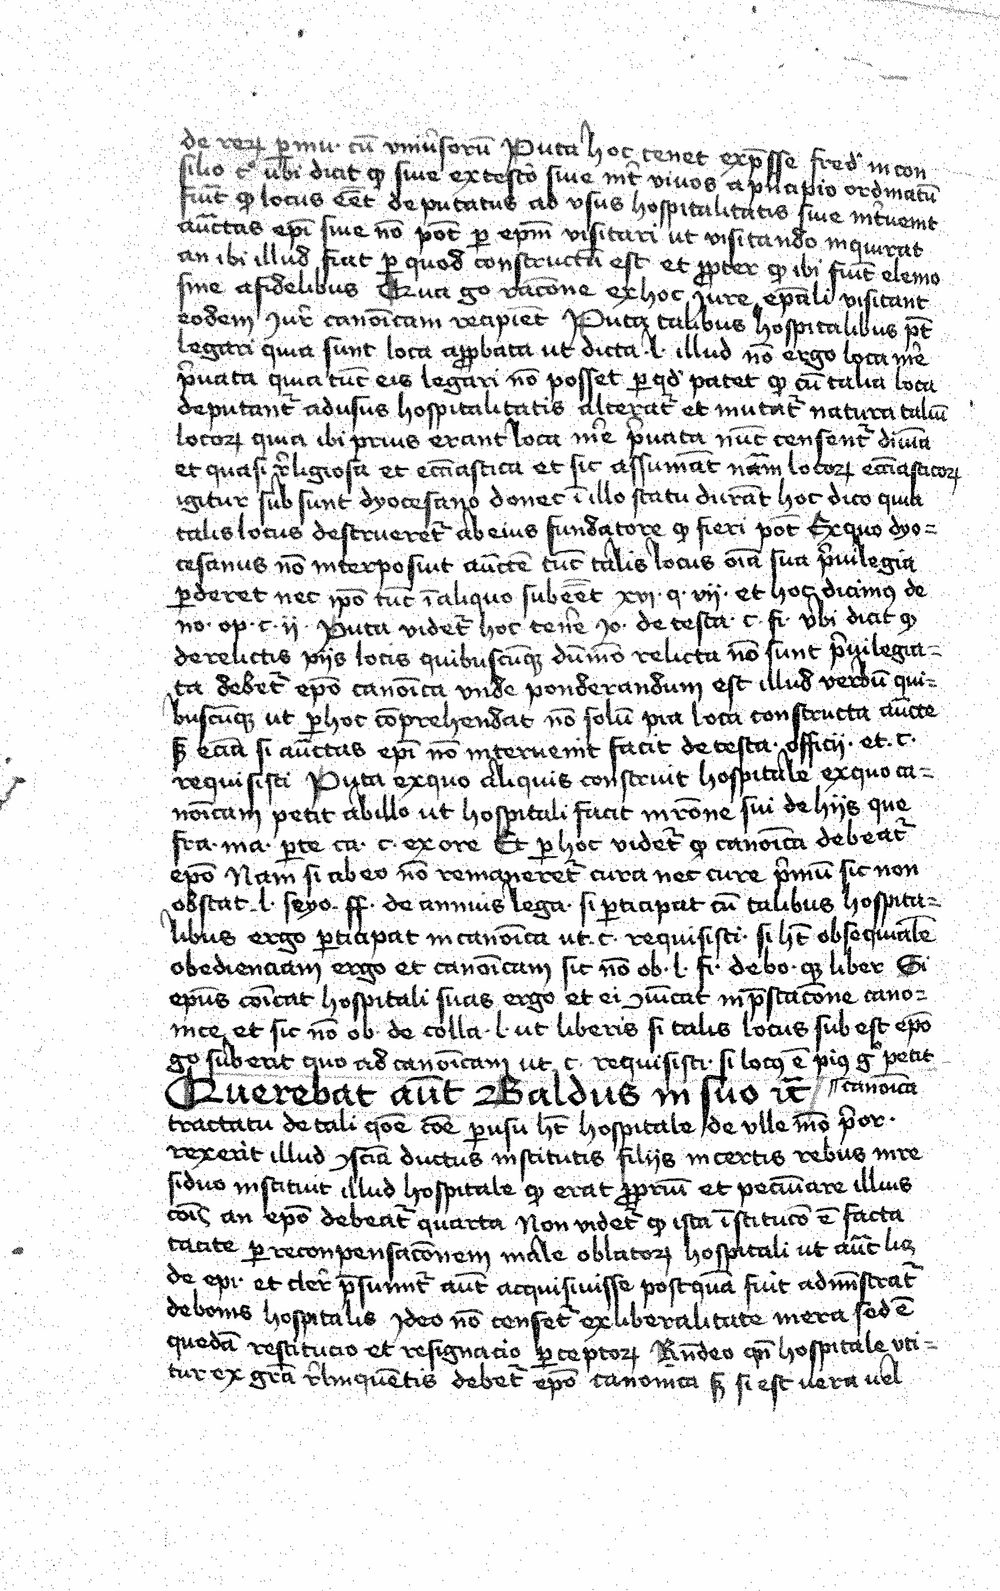 de reꝝ ꝑmu· cū vniu̓soꝝ Puta hoc tenet exp̄sse fred̓ in con
silio cͦ vbi dicit ꝙ siue ex testō siue int̓ viuos a pͥncipio ordinatū
fuit ꝙ locus eēt deputatus ad vsus hospitalitatis siue int̓uenit
auc̄tas epī siue nō pōt ꝑ epm̄ visitari ut visitando inquirat
an ibi illud fiat ꝑ quod constructū est et ꝓpter ꝙ ibi fiūt elemo
sine a fidelibus Qua go racōne ex hoc iure epāli visitant
eodem iur̓ canōicam recipiēt Puta talibus hospitalibus pt̄
legari quia sunt loca aꝓbata ut dicta ·l· illud nō ergo loca me̓
pͥuata quia tūc eis legari nō posset ꝑ qd̓ patet ꝙ cū talia loca
deputant̓ ad usus hospitalitatis alterat̓ et mutat̓ natura taliū
locoꝝ quia ibi prius erant loca me̓ pͥuata nūc censent̓ diuīa
et quasi r̓ligiosa et ecc̄iastica et sic assumāt nām locoꝝ ecc̄iasticoꝝ
igitur sub sunt dyocesano donec ī illo statu durāt hoc dico quia
talis locus destrueret̓ ab eius fundatore ꝙ fieri pōt Ex quo dyo=
cesanus nō interposuit auc̄tem tūc talis locus oīa sua pͥuilegia
ꝑderet nec ipō tūc ī aliquo subeēt xvi· q· vij· et hoc dicimꝰ de
no· op· c· ij· Puta videt̓ hoc tene̓ Jo· de testa· c· fi· vbi dicit ꝙ
de relictis pijs locis quibuscūqꝫ dūmō relicta nō sunt pͥuilegia=
ta debet̓ epō canōica vnde ponderandum est illud verbū qui=
buscūqꝫ ut ꝑ hoc cōprehendat nō solū pia loca constructa auc̄te
sꝫ eciā si auc̄tas epī nō interuenit facit de testa· officij· et· c·
requisisti Puta ex quo aliquis construit hospitale ex quo ca=
nōicam petit ab illo ut hospitali facit in rōne sui de hijs que
fra· ma· ꝑte ca· c· ex ore Et ꝑ hoc videt̓ ꝙ canōica debeat̓
epō Nam si ab eo nō remaneret̓ cura nec cure pͥmū sic non
obstat ·l· seyo· ff· de annuis lega· si ꝑticipat cū talibus hospita=
libus ergo ꝑticipat in canōica ut· c· requisisti· si ht̄ obsequialē
obedienciam ergo et canōicam sic nō ob· l· fi· de bo· qꝫ liber Si
epūs cōicat hospitali suas ergo et ei ꝯuīcat in p̄stacōne cano=
nice et sic nō ob· de colla· l· ut liberis si talis locus sub est epō
go suberit quo ad canōicam ut· c· requisisti· si locꝰ ē piꝰ gͦ petit
canōica
Querebat aūt Baldus in suo ꝛc̄
tractatu de tali qōe cōe ꝑ usu ht̄ hospitale de vlle mō pͥor·
rexerit illud ꝯsciā ductus institutis filijs in certis rebus in re
siduo instituit illud hospitale ꝙ erat ꝓpriū et pecūiare illius
cōis an epō debeat̓ quarta Non videt̓ ꝙ ista īstitucō ē facta
tacite ꝑ reconpensacōnem male oblatoꝝ hospitali ut aūt hꝫ
de epi· et cler̓ p̄sumit̓ aūt acquisiuisse postquā fuit adm̄istrat̓
de bonis hospitalis Jdeo nō censet̓ ex liberalitate mera sed ē
quedā restitucio et resignacio ꝑceptoꝝ Rn̄deo qn̄ hospitale vti=
tur ex grā r̓linquētis debet̓ epō canonica sꝫ si est vera uel